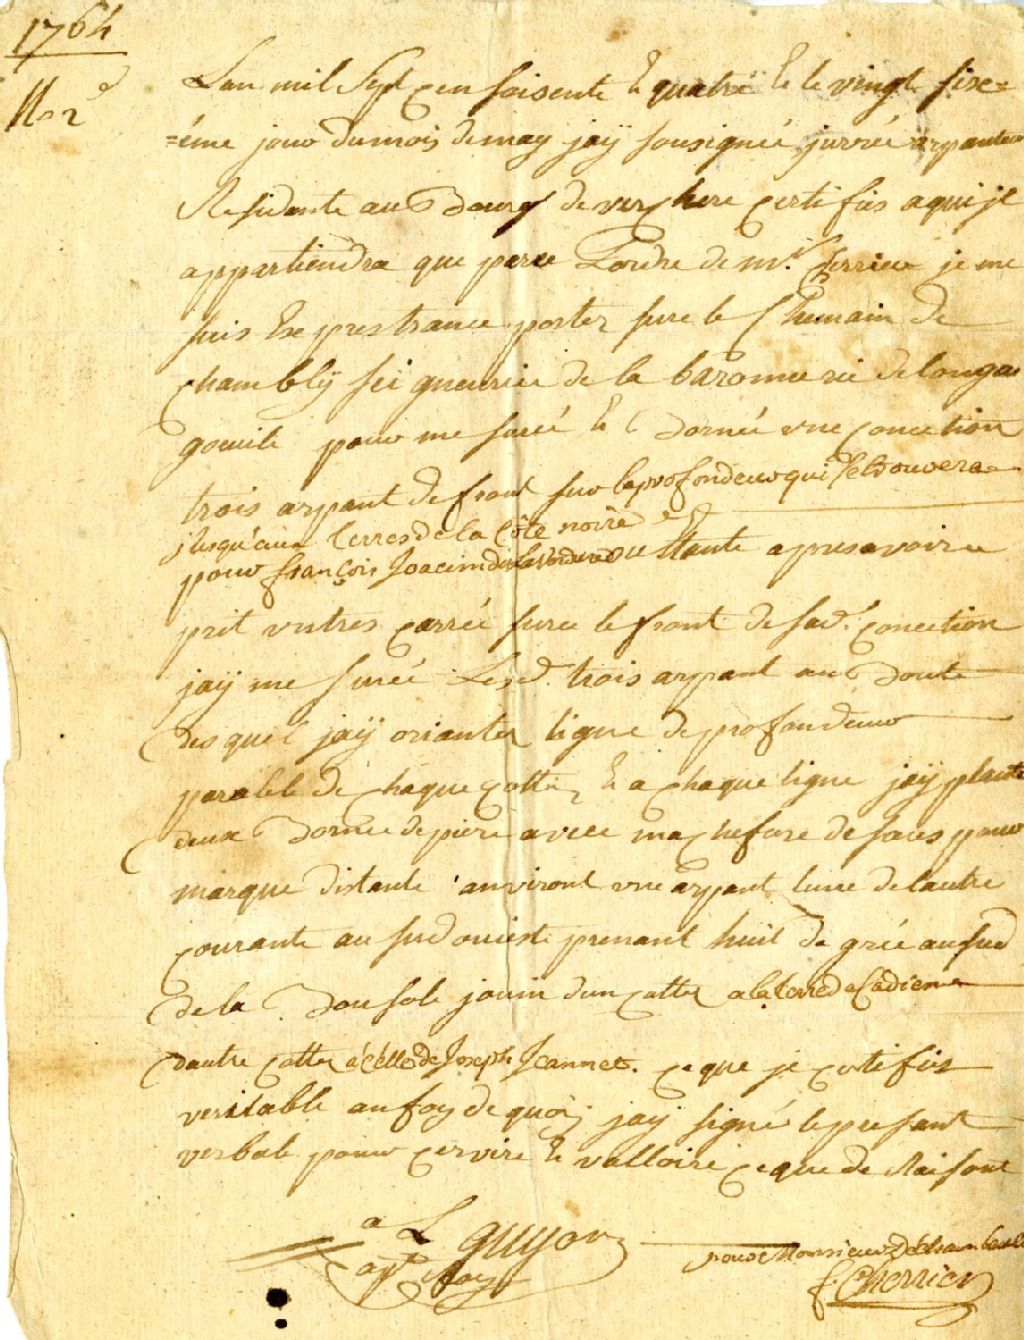 1764
N.o 2
Lan mil Sept cen soisente & quatre & le vingt sixe=
=éme jour du mois de may jaÿ sousigneé jurrée arpanteur
Residante au Bourg de verchere certifiis a qui jl
appartiendra que parce Lordre de mr. cherrier je me
suis Expres trance porter sure le Chemain de
Chamblÿ seigneurie de la baronnie de longai
gouile pour me suré & Bornée vne concection
trois arpant de front sur la profondeur qui se trouvera
jusqu'aux terres de la Côte noire
pour françois Joacim dit laverdure Estante apres avoire
prit vistres carrée suree le front de sad. concection
jaÿ me surée Lesd. trois arpant au Boute
desquel jaÿ orianter ligne de profondeur
paralele de chaque cotter & a chaque ligne jaÿ plante
deux Bornee de piere avece machefere de sous pour
marque distante anviront vne arpant lune de lautre
courante au sud oueste prenant huit de grée au sud
de la Bousole join dun cotter a la terre de Cadieux
dautre cotter a celle de Joseph Jeannot. ce que je certifiis
veritable au foy de quoÿ jaÿ signé le present
verbale pour cervire & valloire ce que de Raisont
a L Guyon
arp Roy
pour Monsieur Dechambault
f. Cherrier